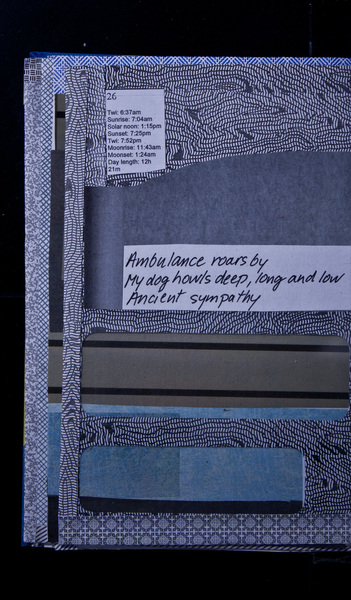 26
Twi: 6:37am
Sunrise: 7:04am
Solar noon: 1:15pm
Sunset: 7:25pm
Twi: 7:52pm
Moonrise: 11:43am
Moonset: 1:24am
Day length: 12h
21m
Ambulance roars by
My dog howls deep, long and low
Ancient sympathy